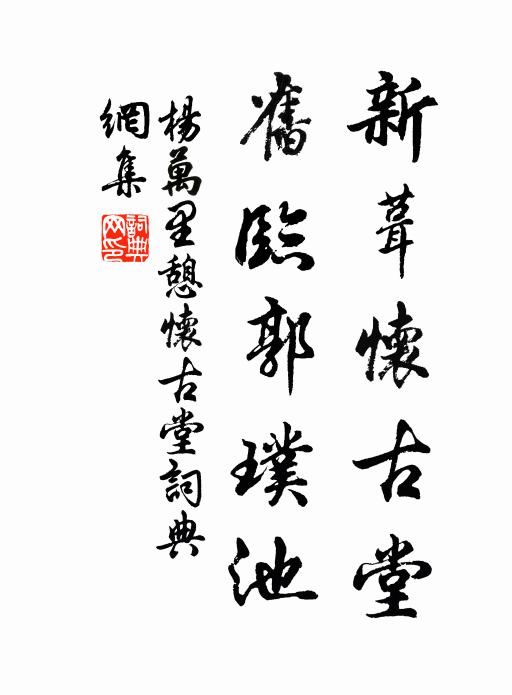 新葺懷古堂
舊臨郭璞池
楊萬里憩懷古堂詞典
網集
詞典网印